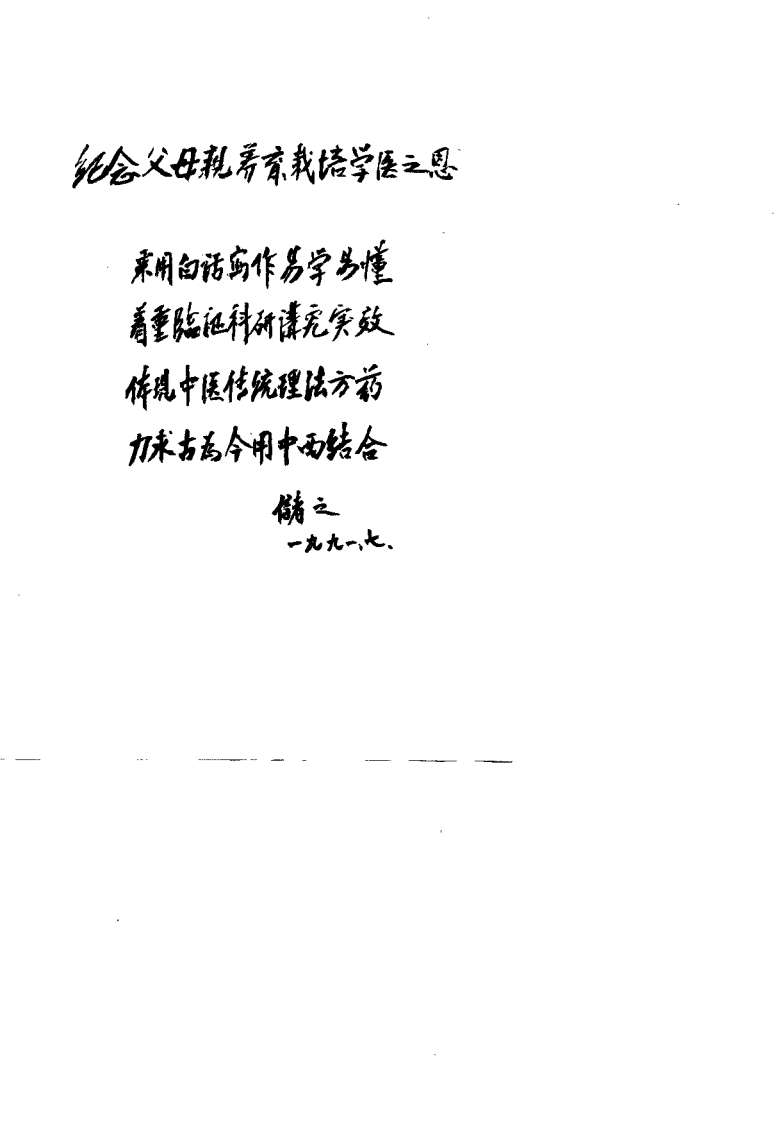 纪念父母親养育栽培学医之恩
采用白话写作易学易懂
着重臨证科研講究实效
体現中医传统理法方药
力求古为今用中西结合
储之
一九九一、七.